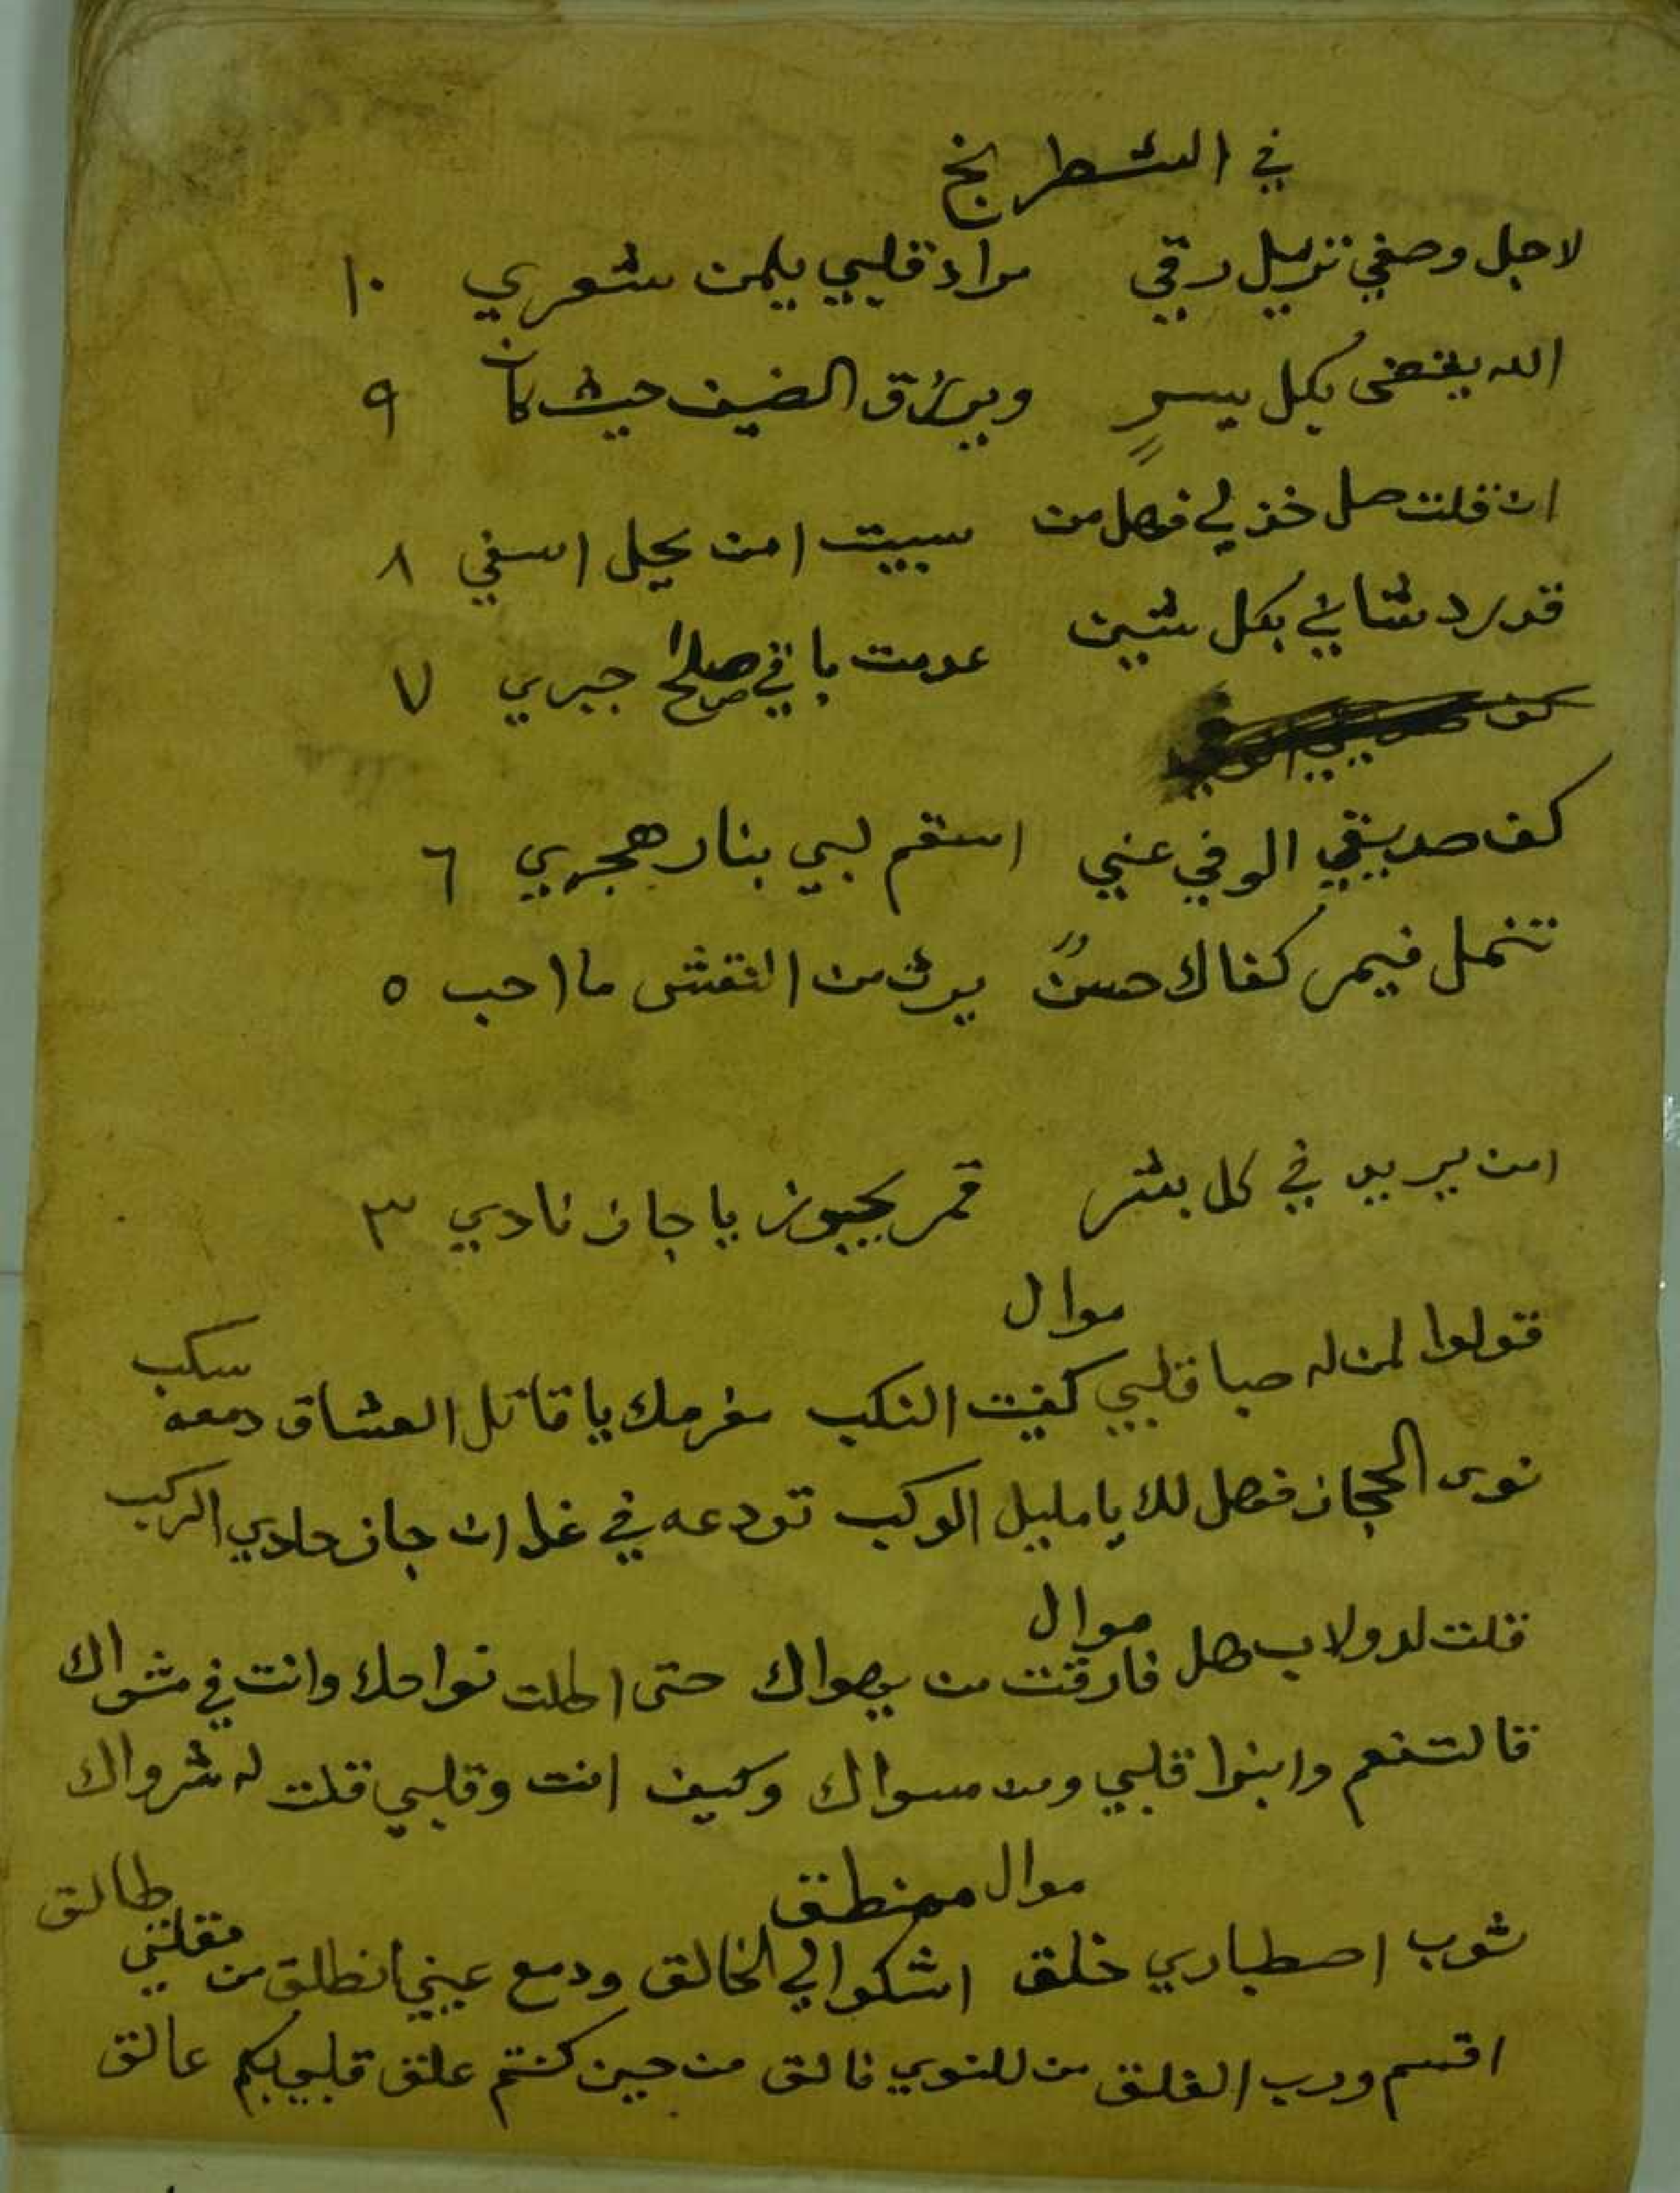 في الشطرنج
لاجل وصفي تزيل رقي مراد قلبي يلمن شعري ١٠
الله يقضى بكل يسرٍ ويرزق الضيف حيث كان ٩
ان قلت صل خذ لي فهل من سبيت امن يحل اسفي ٨
قد رد شا لي بكل شين عدمت يا في صلح جبري ٧
كف صديقي الوفي عني اسقم لبي بنار هجري ٦
كفاك حسنٌ من النقش ما احب ٥
امن يريد في كل بشر قمر يجوز يا جان نادي ٣
موال
قولوا لمن له صبا قلبي كفيت النكب مغرمك يا قاتل العشاق دمعه سكب
نوى الحجاز فهل لك يا مليل الوكب تودعه في غد ان جاز حادي الركب
موال
قلت لدولاب هل فارقت من يهواك حتى اطلت نواحك وانت في مثواك
قالت نعم وابنوا قلبي ومن سواك وكيف انت وقلبي قلت له شرواك
موال ممنطق
ثوب اصطباري خلق اشكوا لي الخالق ودمع عيني انطلق من مقلتي طالق
اقسم ورب الفلق من للنوي فالق من حين كنتم علق قلبي بكم عالق